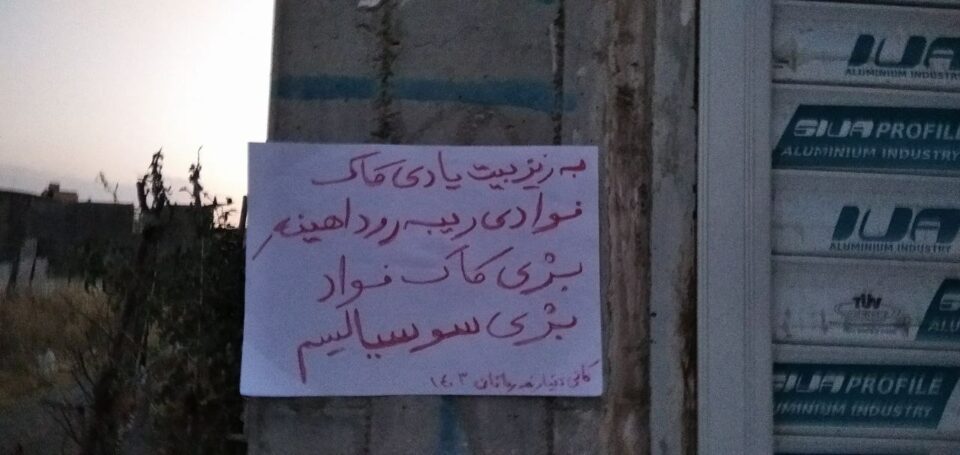 به ریز بیت یادی کاک
فوادی ریبه رو داهینه ر
بژی کاک فواد
بژی سوسیالیسم
کانی دینار مریوان ١٤٠٣
IUA
ALUMINIUM INDUSTRY
SIUA PROFILE
ALUMINIUM INDUSTRY
IUA
ALUMINIUM INDUSTRY
TÜV
ALU
SIUA PROFILE
UMINIUM INDUSTRY